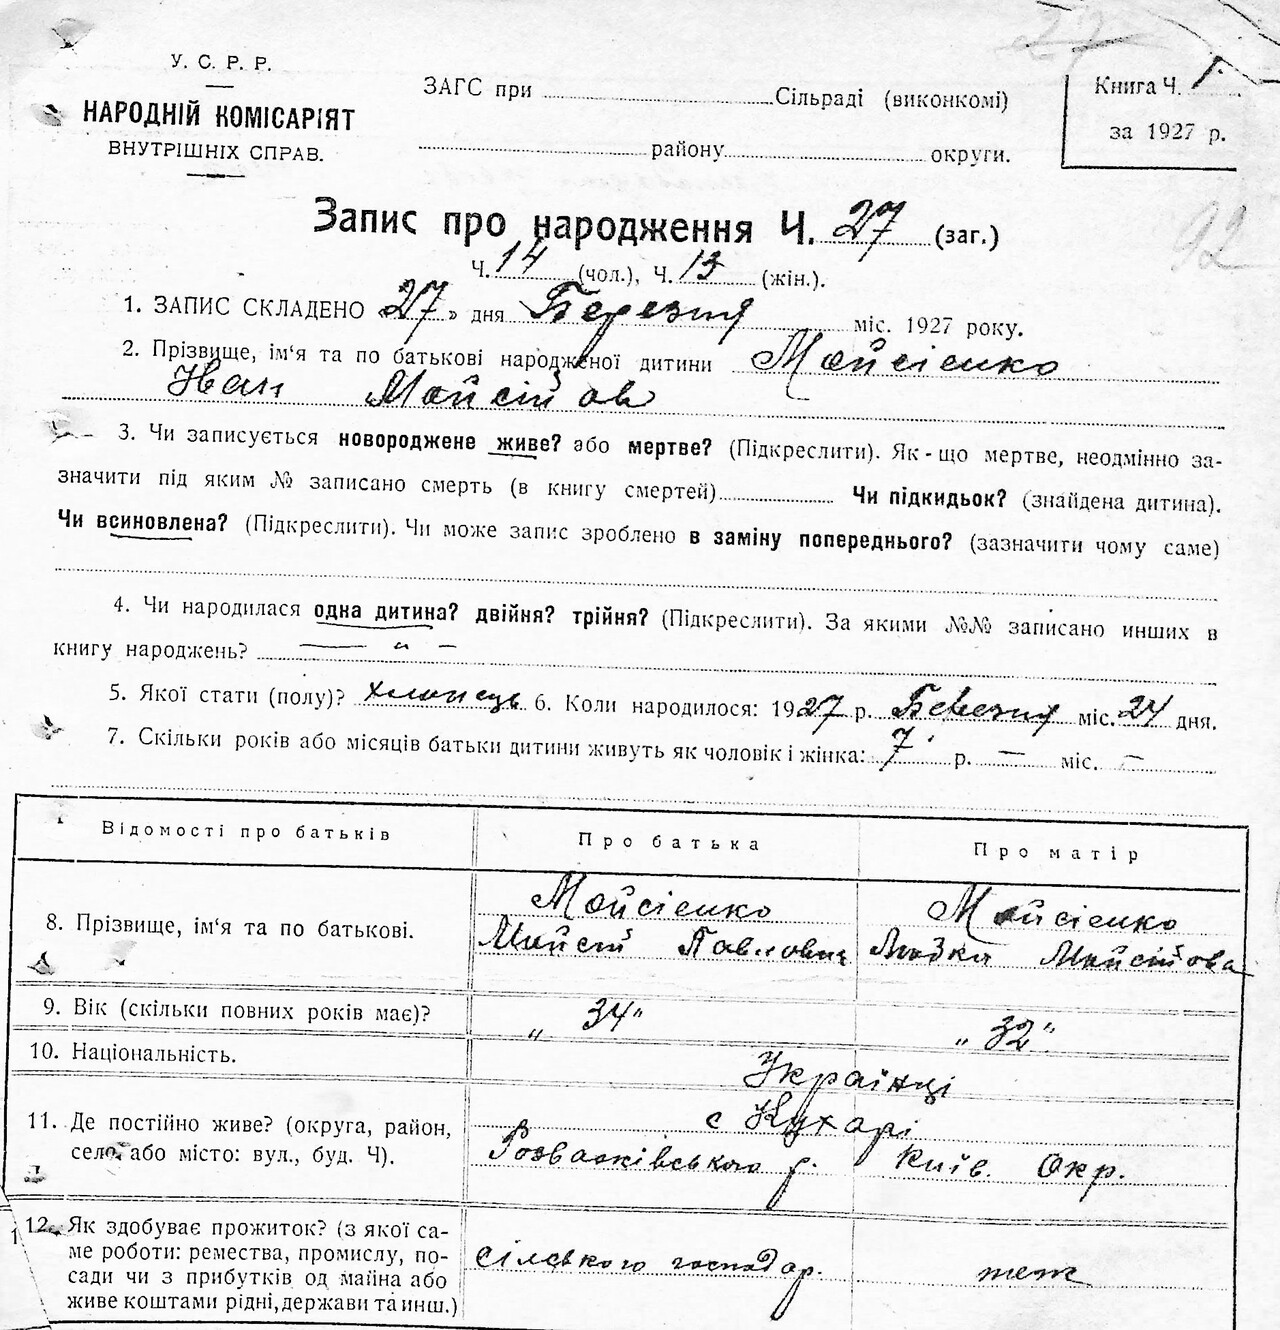 27
У. С. Р. Р.
НАРОДНІЙ КОМІСАРІЯТ
ВНУТРІШНІХ СПРАВ.
ЗАГС при Сільраді (виконкомі)
району округи.
Книга Ч. 1
за 1927 р.
92
Запис про народження Ч. 27 (заг.)
Ч. 14 (чол.), Ч. 13 (жін.).
1. ЗАПИС СКЛАДЕНО «27» дня Березня міс. 1927 року.
2. Прізвище, ім'я та по батькові народженої дитини Мойсієнко
Іван Мойсійов
3. Чи записується новороджене живе? або мертве? (Підкреслити). Як-що мертве, неодмінно за-
значити під яким № записано смерть (в книгу смертей) Чи підкидьок? (знайдена дитина).
Чи всиновлена? (Підкреслити). Чи може запис зроблено в заміну попереднього? (зазначити чому саме)
4. Чи народилася одна дитина? двійня? трійня? (Підкреслити). За якими №№ записано инших в
книгу народжень? — " —
5. Якої стати (полу)? хлопець 6. Коли народилося: 1927 р. Березня міс. 24 дня.
7. Скільки років або місяців батьки дитини живуть як чоловік і жінка: 7 р. — міс. —
Відомості про батьків Про батька Про матір
8. Прізвище, ім'я та по батькові. Мойсієнко Мойсій Павлович Мойсієнко Мойсійова
9. Вік (скільки повних років має)? „ 34" „ 32"
10. Національність. Українці
11. Де постійно живе? (округа, район,
село, або місто: вул., буд. Ч). с Кухарі
Розважівського р. Київ. Окр.
12. Як здобуває прожиток? (з якої са-
ме роботи: ремества, промислу, по-
сади чи з прибутків од майна або
живе коштами рідні, держави та инш.) сілського господар. теж